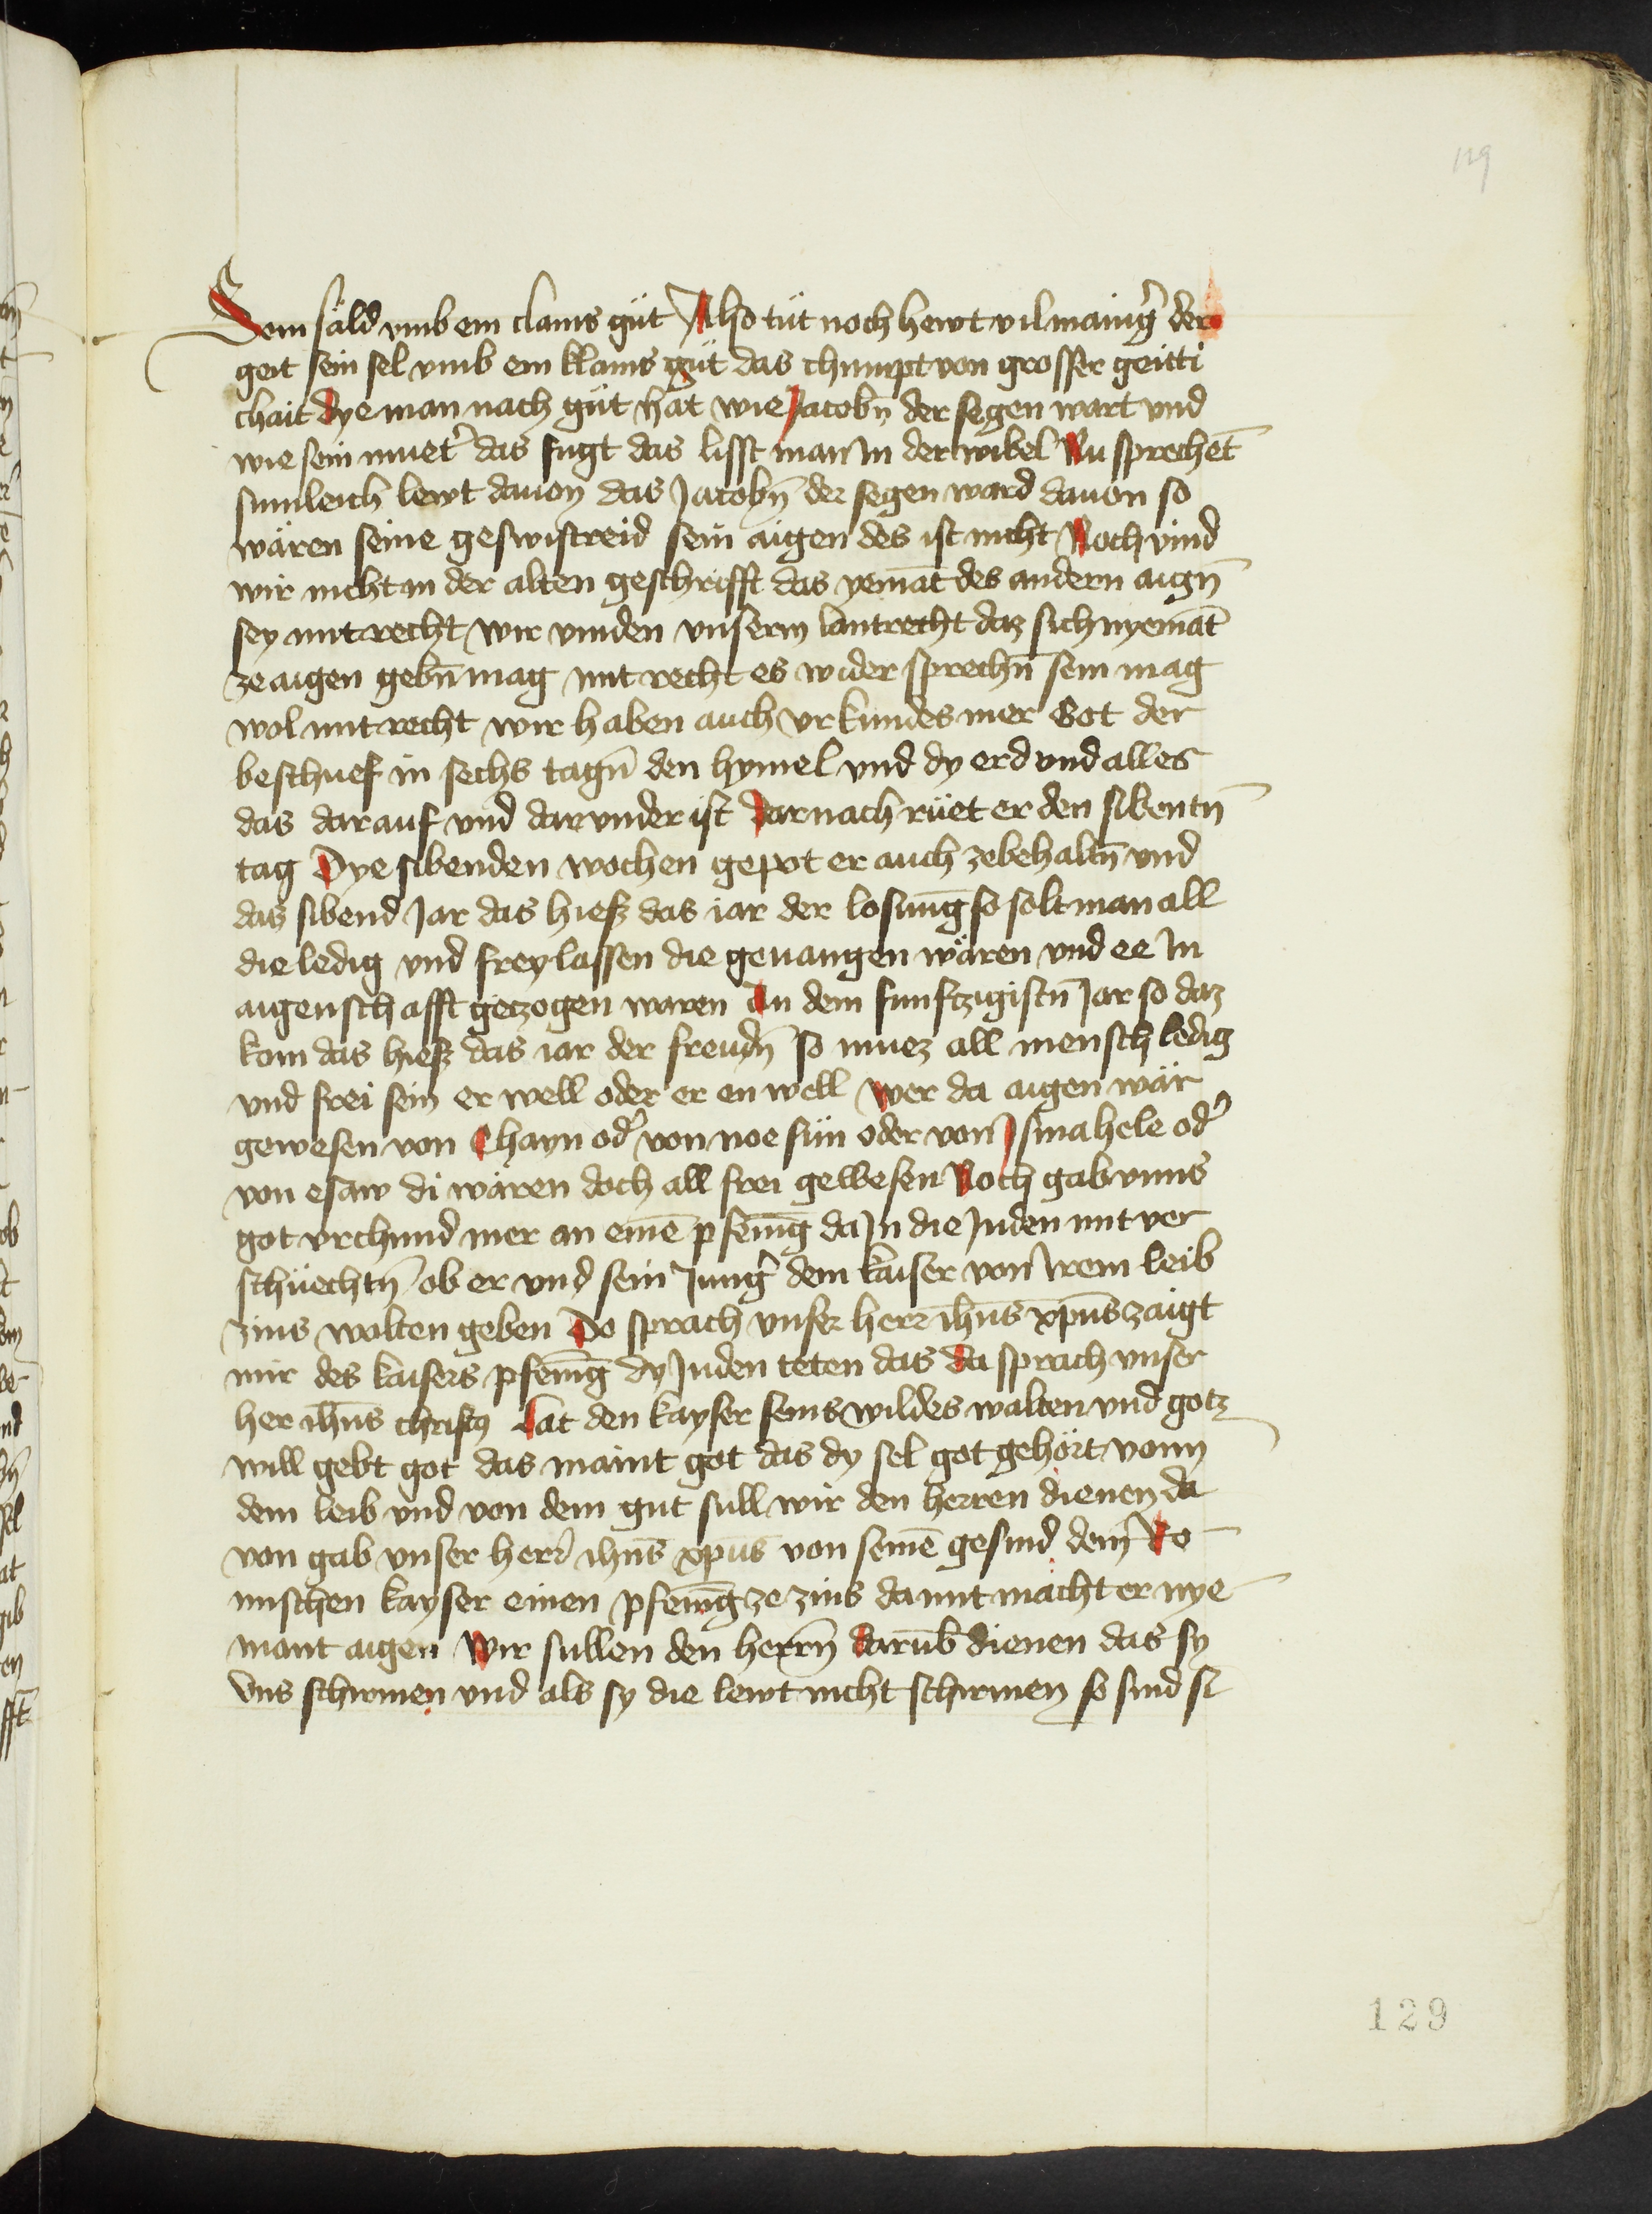 119
Sein säld vmb ein clains güt Also tüt noch hewt vil manig̉ der
geit sein sel vmb ein klains güt das chumpt von grosser geitti
chait dye man nach güt hat wie Jacobn̄ der segen wart vnd
wie sein muet̉ das fugt das lisst man In der wibel Nu sprechēt
sumleich lewt dauon das Jacobn̄ der segen ward dauon so
wären seine geswistreid sein aigen des ist nicht Noch vind
wir nicht in der alten geschrifft das yemāt des andern aign̄
sey mit recht wir vinden vnserm lantrecht daz sich nyemāt
ze aigen gebn̄ mag mit recht es wider sprechn̄ sein mag
wol mit recht wir haben auch vrkundes mer Got der
beschuef in sechs tagn̄ den hymel vnd dy erd vnd alles
das darauf vnd darvnder ist Darnach rüet er den sibentn̄
tag Dye sibenden wochen gepot er auch zebehaltn̄ vnd
das sibend Jar das hiesz das iar der losung so solt man all
die ledig vnd frey lassen die geuangen wären vnd ee In
aigenschafft getzogen waren An dem funftzigistn̄ Jar so daz
kom das hiesz das iar der freudn̄ so muez all mensch ledig
vnd frei sein er well oder er en well wer da aigen wär
gewesen von Chayn od̉ von noe sün oder von Jsmahele od̉
von esaw di wären doch all frei gewesen Noch gab vnns
got vrchund mer an einē pfenīg da In die Juden mit ver
schüechtn̄ ob er vnd sein Jung̉ dem kaiser von Irem leib
zins wolten geben Do sprach vnser herr ih̄us xp̄us zaigt
mir des kaisers pfenīg dy Juden teten das Da sprach vnser
her ih̄us christꝫ Lat den kayser seins wildes walten vnd gotz
will gebt got das maint got das dy sel got gehört vonn
dem leib vnd von dem gut sull wir den herren dienen da
von gab vnser herr̉ ih̄us xp̄us von seinē gesind dem Ro
mischen kayser einen pfenīg ze zins damit macht er nye
mant aigen Wir sullen den herrn̄ darūb dienen das sy
vns schirmen vnd als sy die lewt nicht schirmen so sind si
129